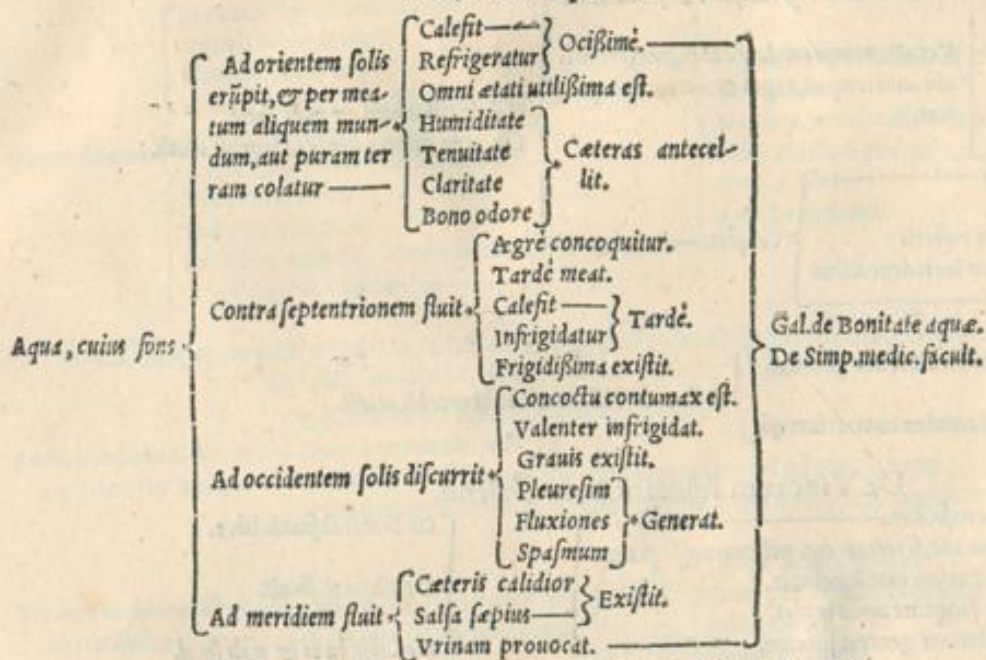 Aqua, cuius fons
Ad orientem solis
erũpit, & per mea-
tum aliquem mun-
dum, aut puram ter
ram colatur
Calefit
Refrigeratur
Ocißimè.
Omni ætati utilißima est.
Humiditate
Tenuitate
Claritate
Bono odore
Cæteras antecel-
lit.
Contra septentrionem fluit
Ægrè concoquitur.
Tardè meat.
Calefit
Infrigidatur
Tardè.
Frigidißima existit.
Ad occidentem solis discurrit
Concoctu contumax est.
Valenter infrigidat.
Grauis existit.
Pleuresim
Fluxiones
Spasmum
Generat.
Ad meridiem fluit
Cæteris calidior
Salsa sæpius
Existit.
Vrinam prouocat.
Gal. de Bonitate aquæ.
De Simp. medic. facult.